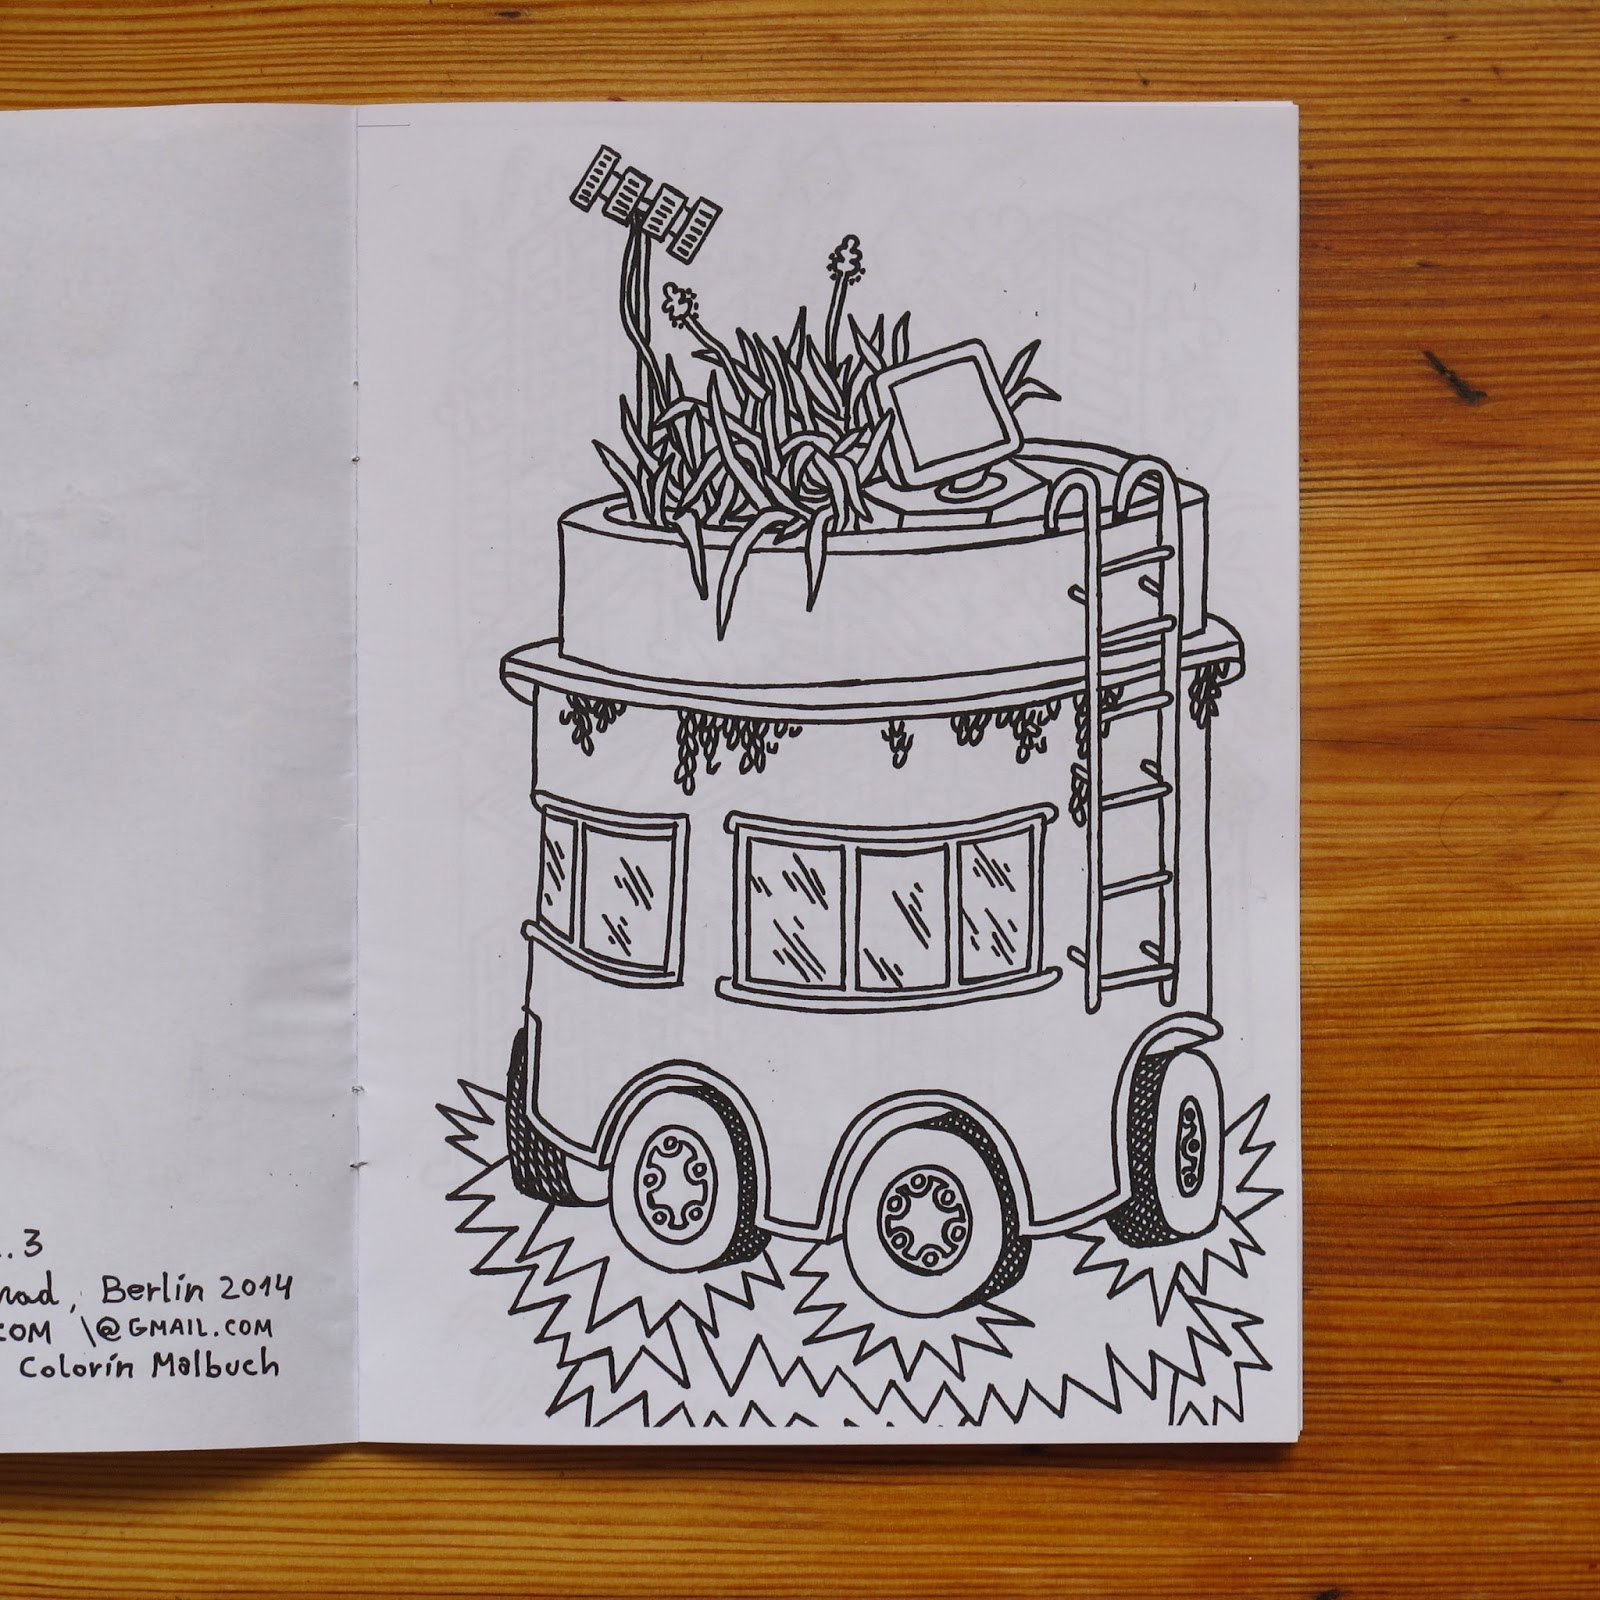 . 3
, Berlin 2014
COM \@GMAIL.COM
Colorín Malbuch